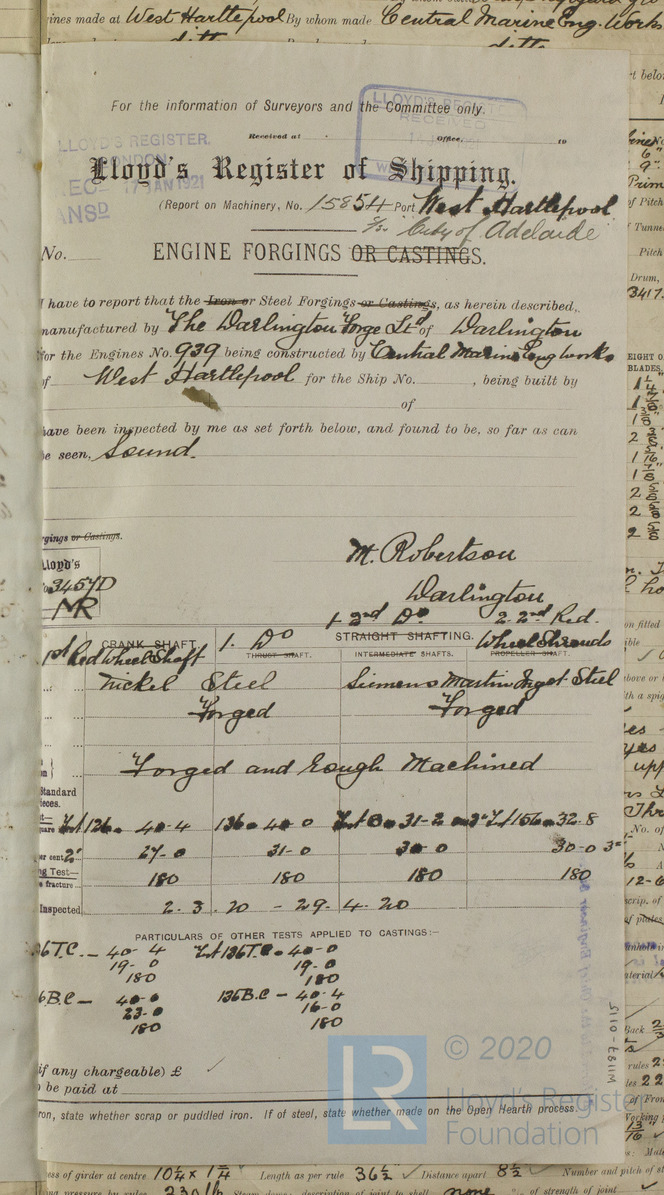 ines made at West Hartlepool By whom made Central Marine Eng. Works
ditto ditto
For the information of Surveyors and the Committee only.
LLOYD'S REGISTER
RECEIVED
Received at Office, 19
LLOYD'S REGISTER.
LONDON
REC⁰ 17 JAN 1921
ANSD
Lloyd's Register of Shipping.
(Report on Machinery, No. 15854 Port West Hartlepool
S/S. City of Adelaide
No.
ENGINE FORGINGS OR CASTINGS.
I have to report that the Iron or Steel Forgings or Castings, as herein described,
manufactured by The Darlington Forge Ltd of Darlington
for the Engines No. 939 being constructed by Central Marine Eng works
of West Hartlepool for the Ship No. , being built by
of
have been inspected by me as set forth below, and found to be, so far as can
be seen, Sound.
rgings or Castings.
Lloyd's
No 3457D
MR
M. Robertson
Darlington
1. 2nd Do 2. 2nd Red.
CRANK SHAFT 1. Do STRAIGHT SHAFTING. Wheel Shrouds
1st Red Wheel Shaft THRUST SHAFT. INTERMEDIATE SHAFTS. PROPELLER SHAFT.
Nickel Steel Siemens Martin Ingot Steel
Forged Forged
Forged and Rough Machined
Standard
ieces.
40-4 40-0 31-2 32.8
per cent 2" 27-0 31-0 30-0 30-0 3"
ng Test— 180 180 180 180
e fracture
Inspected 2. 3. 20 - 29. 4. 20
PARTICULARS OF OTHER TESTS APPLIED TO CASTINGS:—
6T.C. — 40-4 136T.C. 40-0
19-0 19-0
180 180
6B.C — 40-0 136B.C — 40-4
23-0 16-0
180 180
if any chargeable) £
o be paid at
ron, state whether scrap or puddled iron. If of steel, state whether made on the Open Hearth process.
W1187-0115
LR
© 2020
Lloyd's Register
Foundation
ess of girder at centre 10¼ x 1¼" Length as per rule 36½ Distance apart 8½ Number and pitch of st
ng pressure by rules 230 lb none of strength of joint